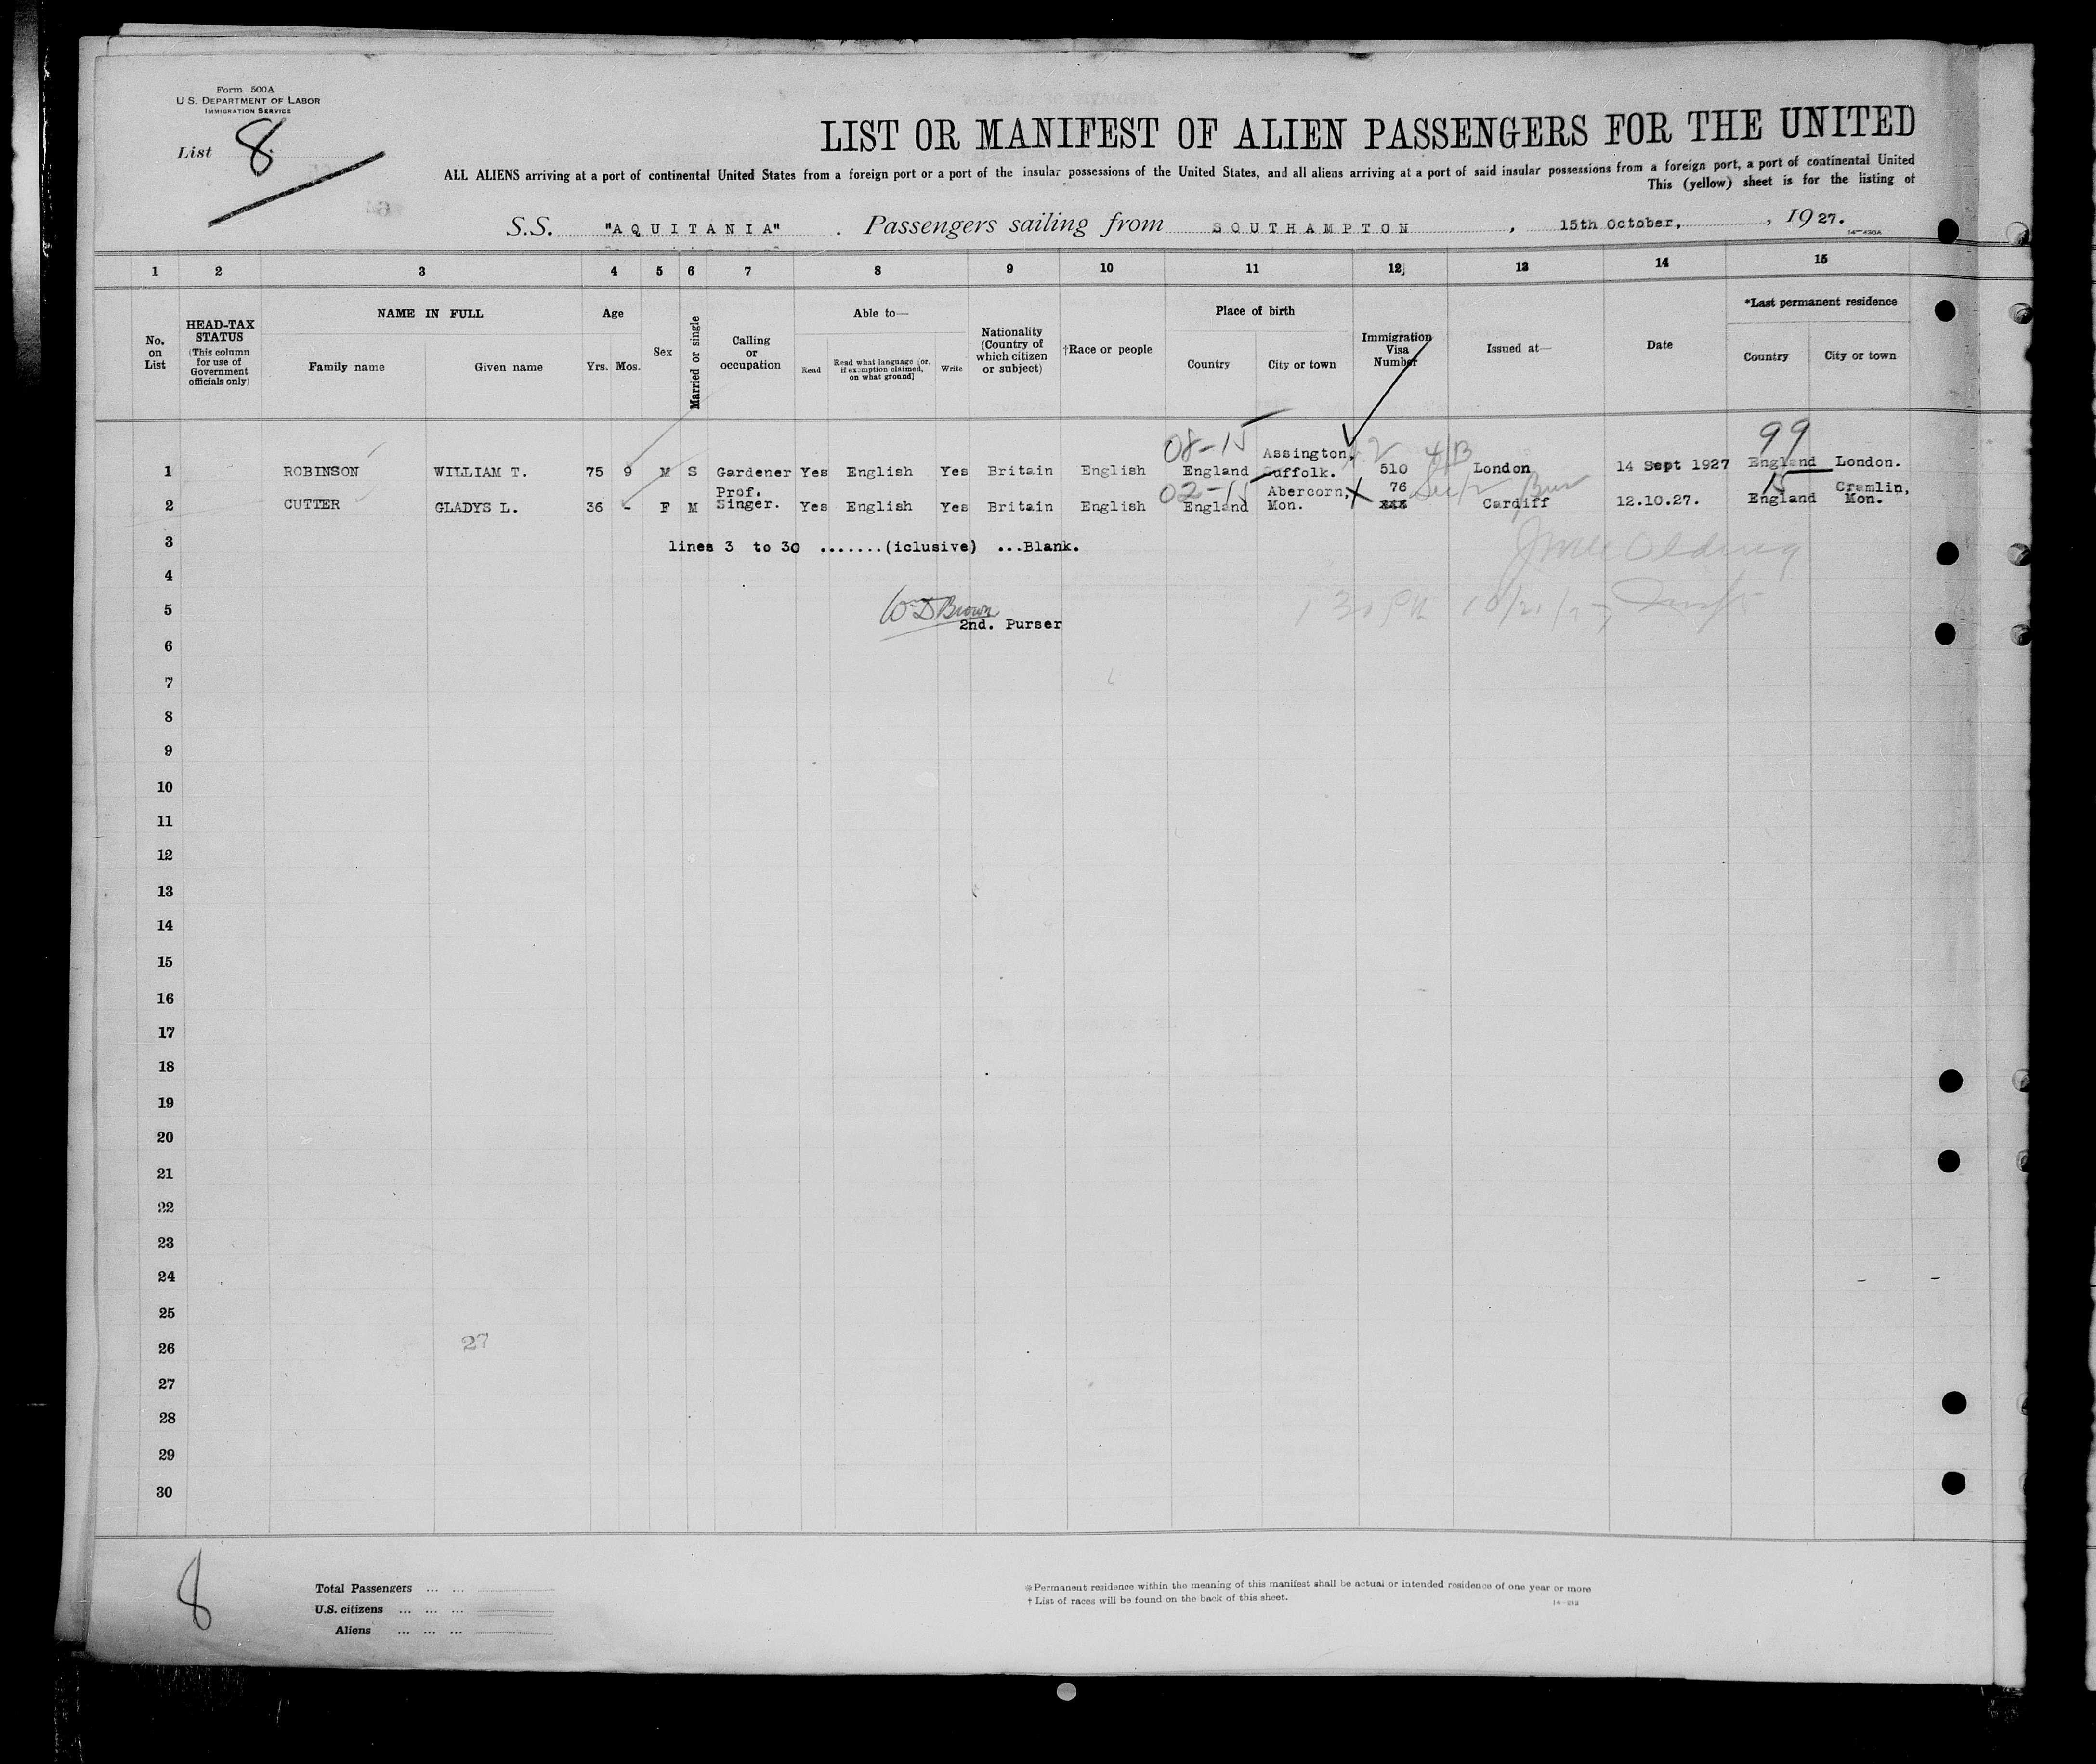 Form 500A
U.S. DEPARTMENT OF LABOR
IMMIGRATION SERVICE
List 8
LIST OR MANIFEST OF ALIEN PASSENGERS FOR THE UNITED
ALL ALIENS arriving at a port of continental United States from a foreign port or a port of the insular possessions of the United States, and all aliens arriving at a port of said insular possessions from a foreign port, a port of continental United
This (yellow) sheet is for the listing of
S.S. "AQUITANIA" . Passengers sailing from SOUTHAMPTON , 15th October, , 1927.
1 2 3 4 5 6 7 8 9 10 11 12 13 14 15
No. on List
HEAD-TAX STATUS (This column for use of Government officials only)
NAME IN FULL
Family name Given name
Age
Yrs. Mos.
Sex
Married or single
Calling or occupation
Able to—
Read
Read what language [or, if exemption claimed, on what ground]
Write
Nationality (Country of which citizen or subject)
†Race or people
Place of birth
Country City or town
Immigration Visa Number
Issued at—
Date
*Last permanent residence
Country City or town
08-15 Assington, 4/B 99
1 ROBINSON WILLIAM T. 75 9 M S Gardener Yes English Yes Britain English England Suffolk. 510 London 14 Sept 1927 England London.
Prof. 02-15 Abercorn, 76 15 Cramlin,
2 CUTTER GLADYS L. 36 - F M Singer. Yes English Yes Britain English England Mon. Cardiff 12.10.27. England Mon.
3 lines 3 to 30 .......(iclusive) ...Blank.
4
5 Wm D Brown
2nd. Purser
6
7
8
9
10
11
12
13
14
15
16
17
18
19
20
21
22
23
24
25
26 27
27
28
29
30
8
Total Passengers ... ...
U.S. citizens ... ... ...
Aliens ... ... ...
※Permanent residence within the meaning of this manifest shall be actual or intended residence of one year or more
† List of races will be found on the back of this sheet.